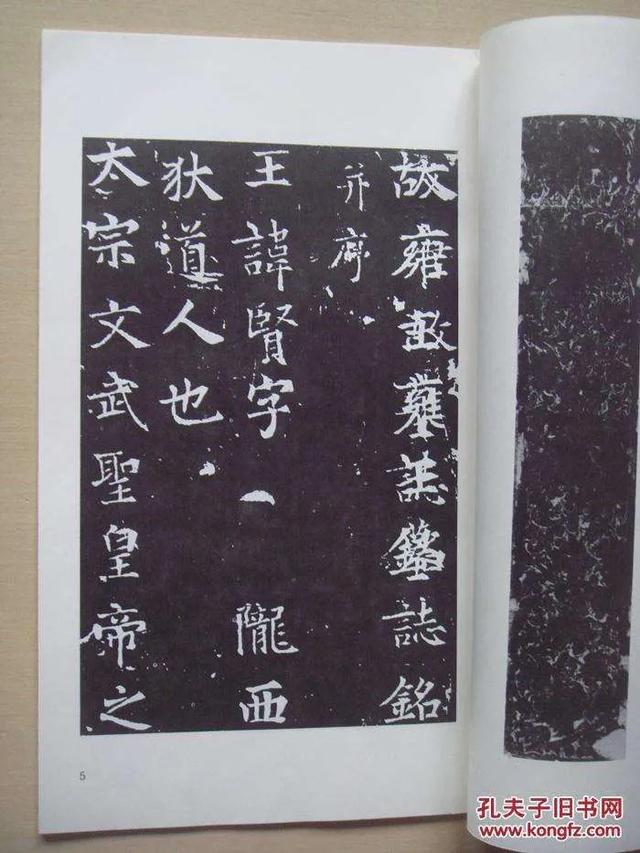 故雍誌銘
并序
王諱賢字 隴西
狄道人也
太宗文武聖皇帝之
5
孔夫子旧书网
www.kongfz.com